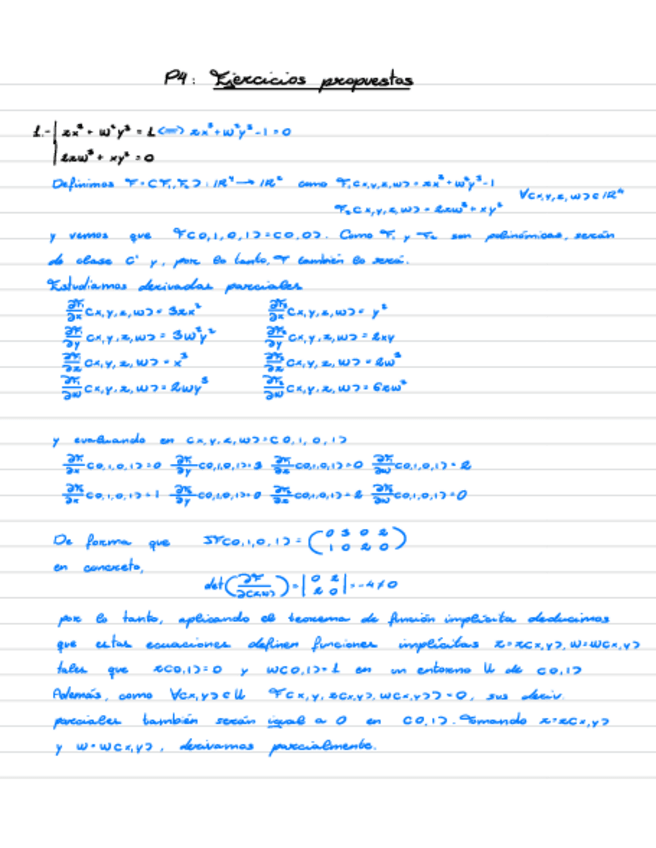 P4: Ejercicios propuestos
1.- | zx³ + w²y³ = 1 <=> zx³ + w²y³ - 1 = 0
2zw³ + xy² = 0
Definimos F = (F₁, F₂): IR⁴ → IR² como F₁(x,y,z,w) = zx³ + w²y³ - 1
F₂(x,y,z,w) = 2zw³ + xy² ∀(x,y,z,w) ∈ IR⁴
y vemos que F(0,1,0,1) = (0,0). Como F₁ y F₂ son polinómicas, serán
de clase C¹ y, por lo tanto, F también lo será.
Estudiamos derivadas parciales
∂F₁/∂x (x,y,z,w) = 3zx² ∂F₂/∂x (x,y,z,w) = y²
∂F₁/∂y (x,y,z,w) = 3w²y² ∂F₂/∂y (x,y,z,w) = 2xy
∂F₁/∂z (x,y,z,w) = x³ ∂F₂/∂z (x,y,z,w) = 2w³
∂F₁/∂w (x,y,z,w) = 2wy³ ∂F₂/∂w (x,y,z,w) = 6zw²
y evaluando en (x,y,z,w) = (0,1,0,1)
∂F₁/∂x (0,1,0,1) = 0 ∂F₁/∂y (0,1,0,1) = 3 ∂F₁/∂z (0,1,0,1) = 0 ∂F₁/∂w (0,1,0,1) = 2
∂F₂/∂x (0,1,0,1) = 1 ∂F₂/∂y (0,1,0,1) = 0 ∂F₂/∂z (0,1,0,1) = 2 ∂F₂/∂w (0,1,0,1) = 0
De forma que JF(0,1,0,1) = (0 3 0 2
1 0 2 0)
en concreto,
det(∂F/∂(z,w)) = |0 2
2 0| = -4 ≠ 0
por lo tanto, aplicando el teorema de función implícita deducimos
que estas ecuaciones definen funciones implícitas z = z(x,y), w = w(x,y)
tales que z(0,1) = 0 y w(0,1) = 1 en un entorno U de (0,1)
Además, como ∀(x,y) ∈ U F(x,y, z(x,y), w(x,y)) = 0, sus deriv.
parciales también serán igual a 0 en (0,1). Tomando z = z(x,y)
y w = w(x,y), derivamos parcialmente.